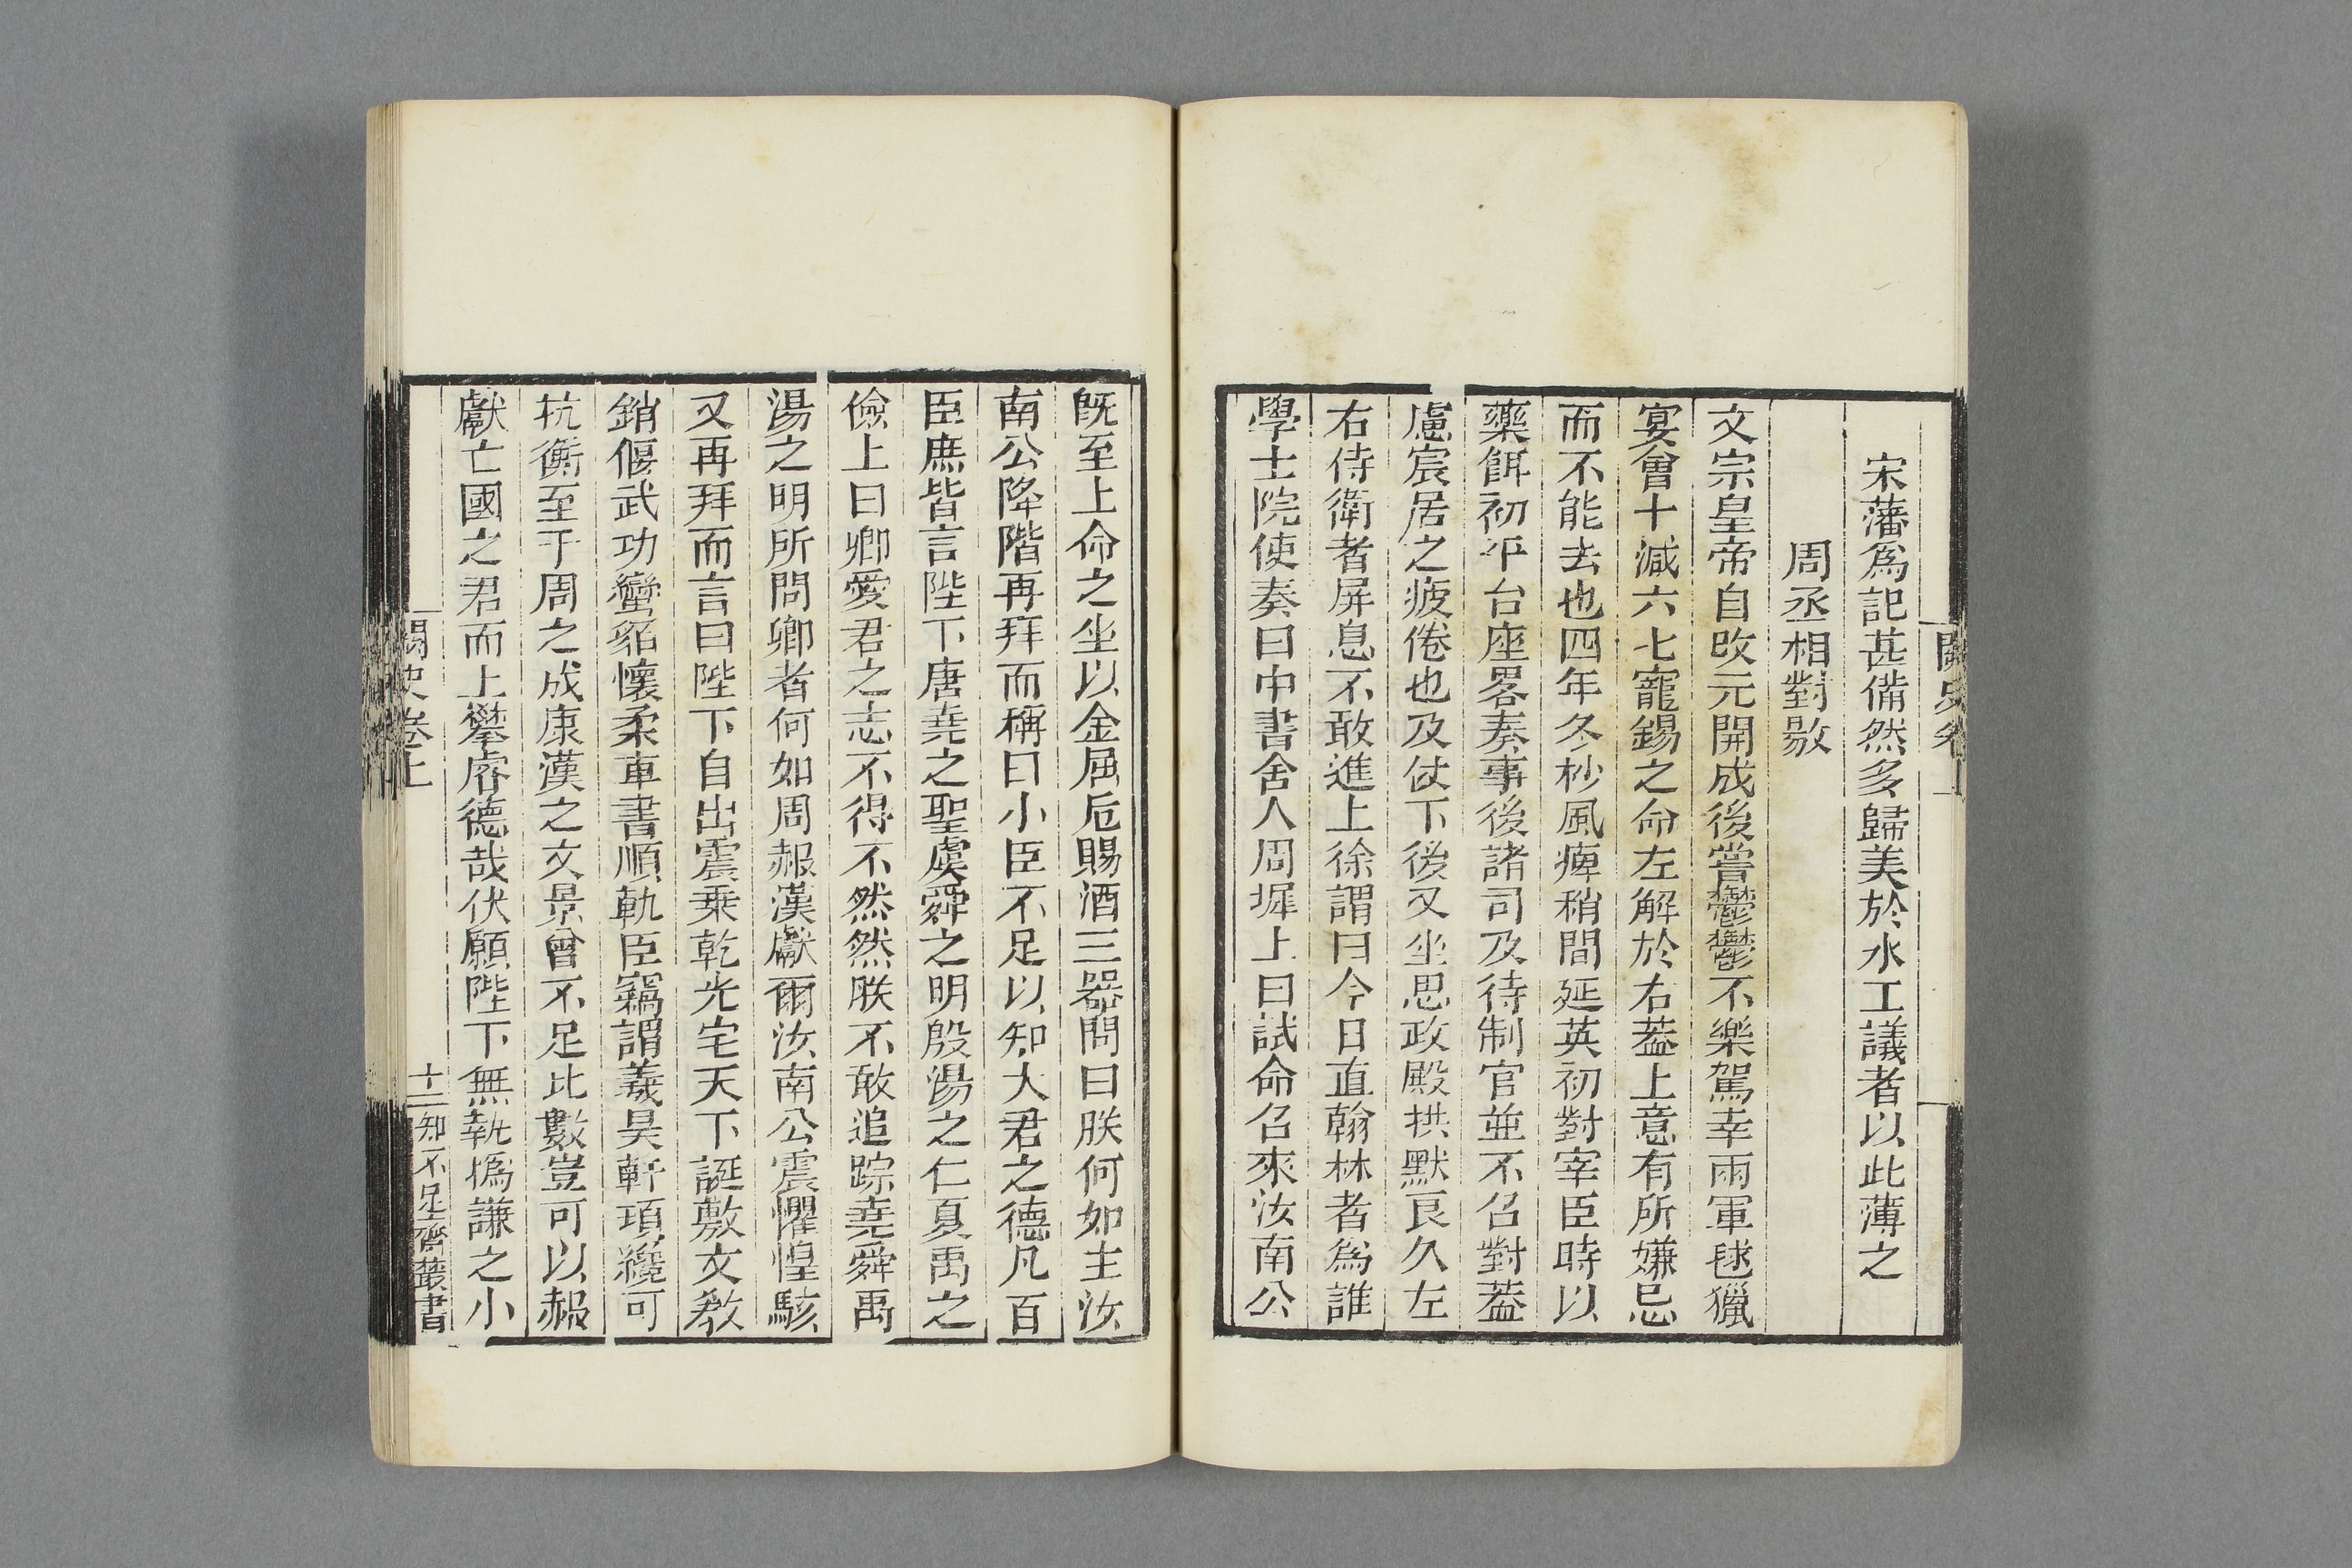 闕史卷上
宋藩爲記甚備然多歸美於水工議者以此薄之
周丞相對敭
文宗皇帝自改元開成後嘗鬱鬱不樂駕幸兩軍毬獵
宴會十減六七寵錫之命左解於右葢上意有所嫌忌
而不能去也四年冬杪風痺稍間延英初對宰臣時以
藥餌初平台座畧奏事後諸司及待制官並不召對葢
慮宸居之疲倦也及仗下後又坐思政殿拱默良久左
右侍衛者屏息不敢進上徐謂曰今日直翰林者爲誰
學士院使奏曰中書舍人周墀上曰試命召來汝南公
旣至上命之坐以金屈卮賜酒三器問曰朕何如主汝
南公降階再拜而稱曰小臣不足以知大君之德凡百
臣庶皆言陛下唐堯之聖虞舜之明殷湯之仁夏禹之
儉上曰卿愛君之志不得不然然朕不敢追踪堯舜禹
湯之明所問卿者何如周赧漢獻爾汝南公震懼惶駭
又再拜而言曰陛下自出震乗乾光宅天下誕敷文敎
銷偃武功蠻貊懷柔車書順軌臣竊謂羲昊軒頊纔可
抗衡至于周之成康漢之文景曾不足比數豈可以赧
獻亡國之君而上攀睿德哉伏願陛下無執撝謙之小
闕史卷上
十二
知不足齋叢書